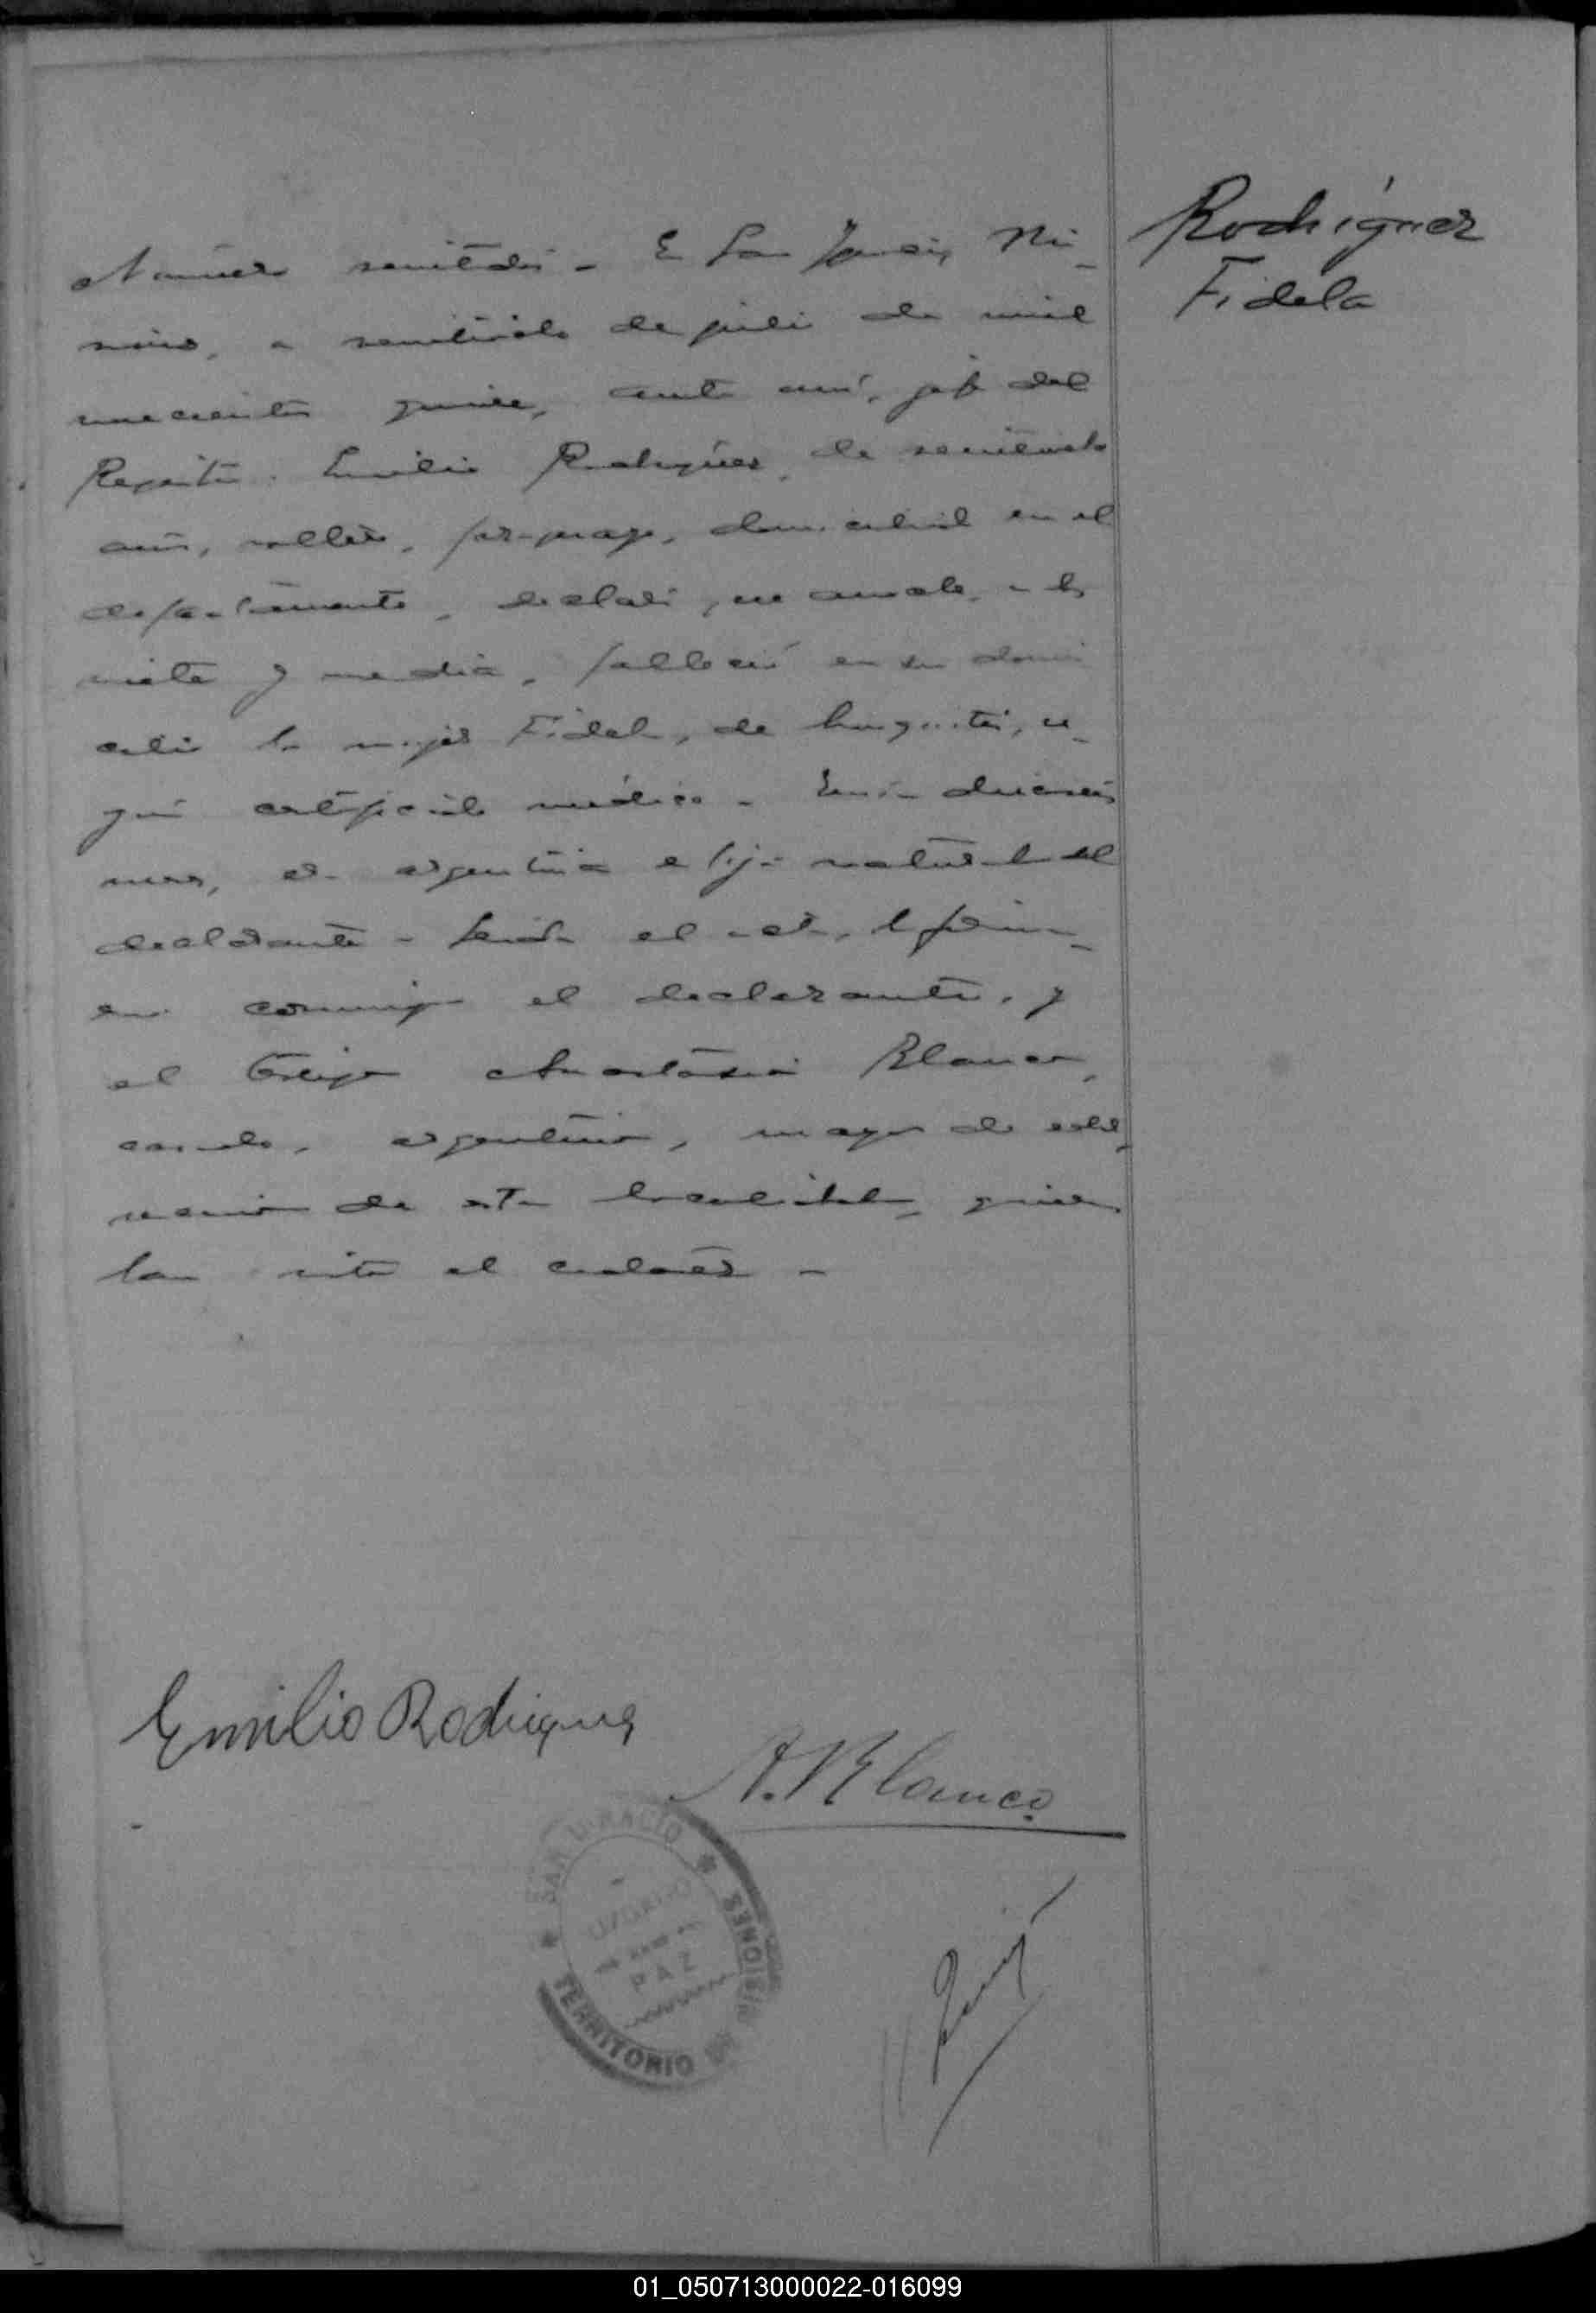 Rodríguez
Fidela
Número veintidós - En San Ignacio, Mi-
siones, a veinticinco de julio de mil
novecientos quince, ante mí, jefe del
Registro. Emilio Rodríguez, de veinticinco
años, soltero, domiciliado en el
departamento, declaró, a las
siete y media, falleció en su domi
cilio la mujer Fidela, de se-
gún certificado médico - Tenía dieciseis
meses, era argentina e hija natural del
declarante - Leída el acta, la firma-
ron conmigo el declarante, y
el testigo Anastasio Blanco,
casado, argentino, mayor de edad,
vecino de esta localidad, quien
han visto el cadáver -
Emilio Rodriguez
A. Blanco
SAN IGNACIO
JUZGADO
PAZ
TERRITORIO DE MISIONES
01_050713000022-016099